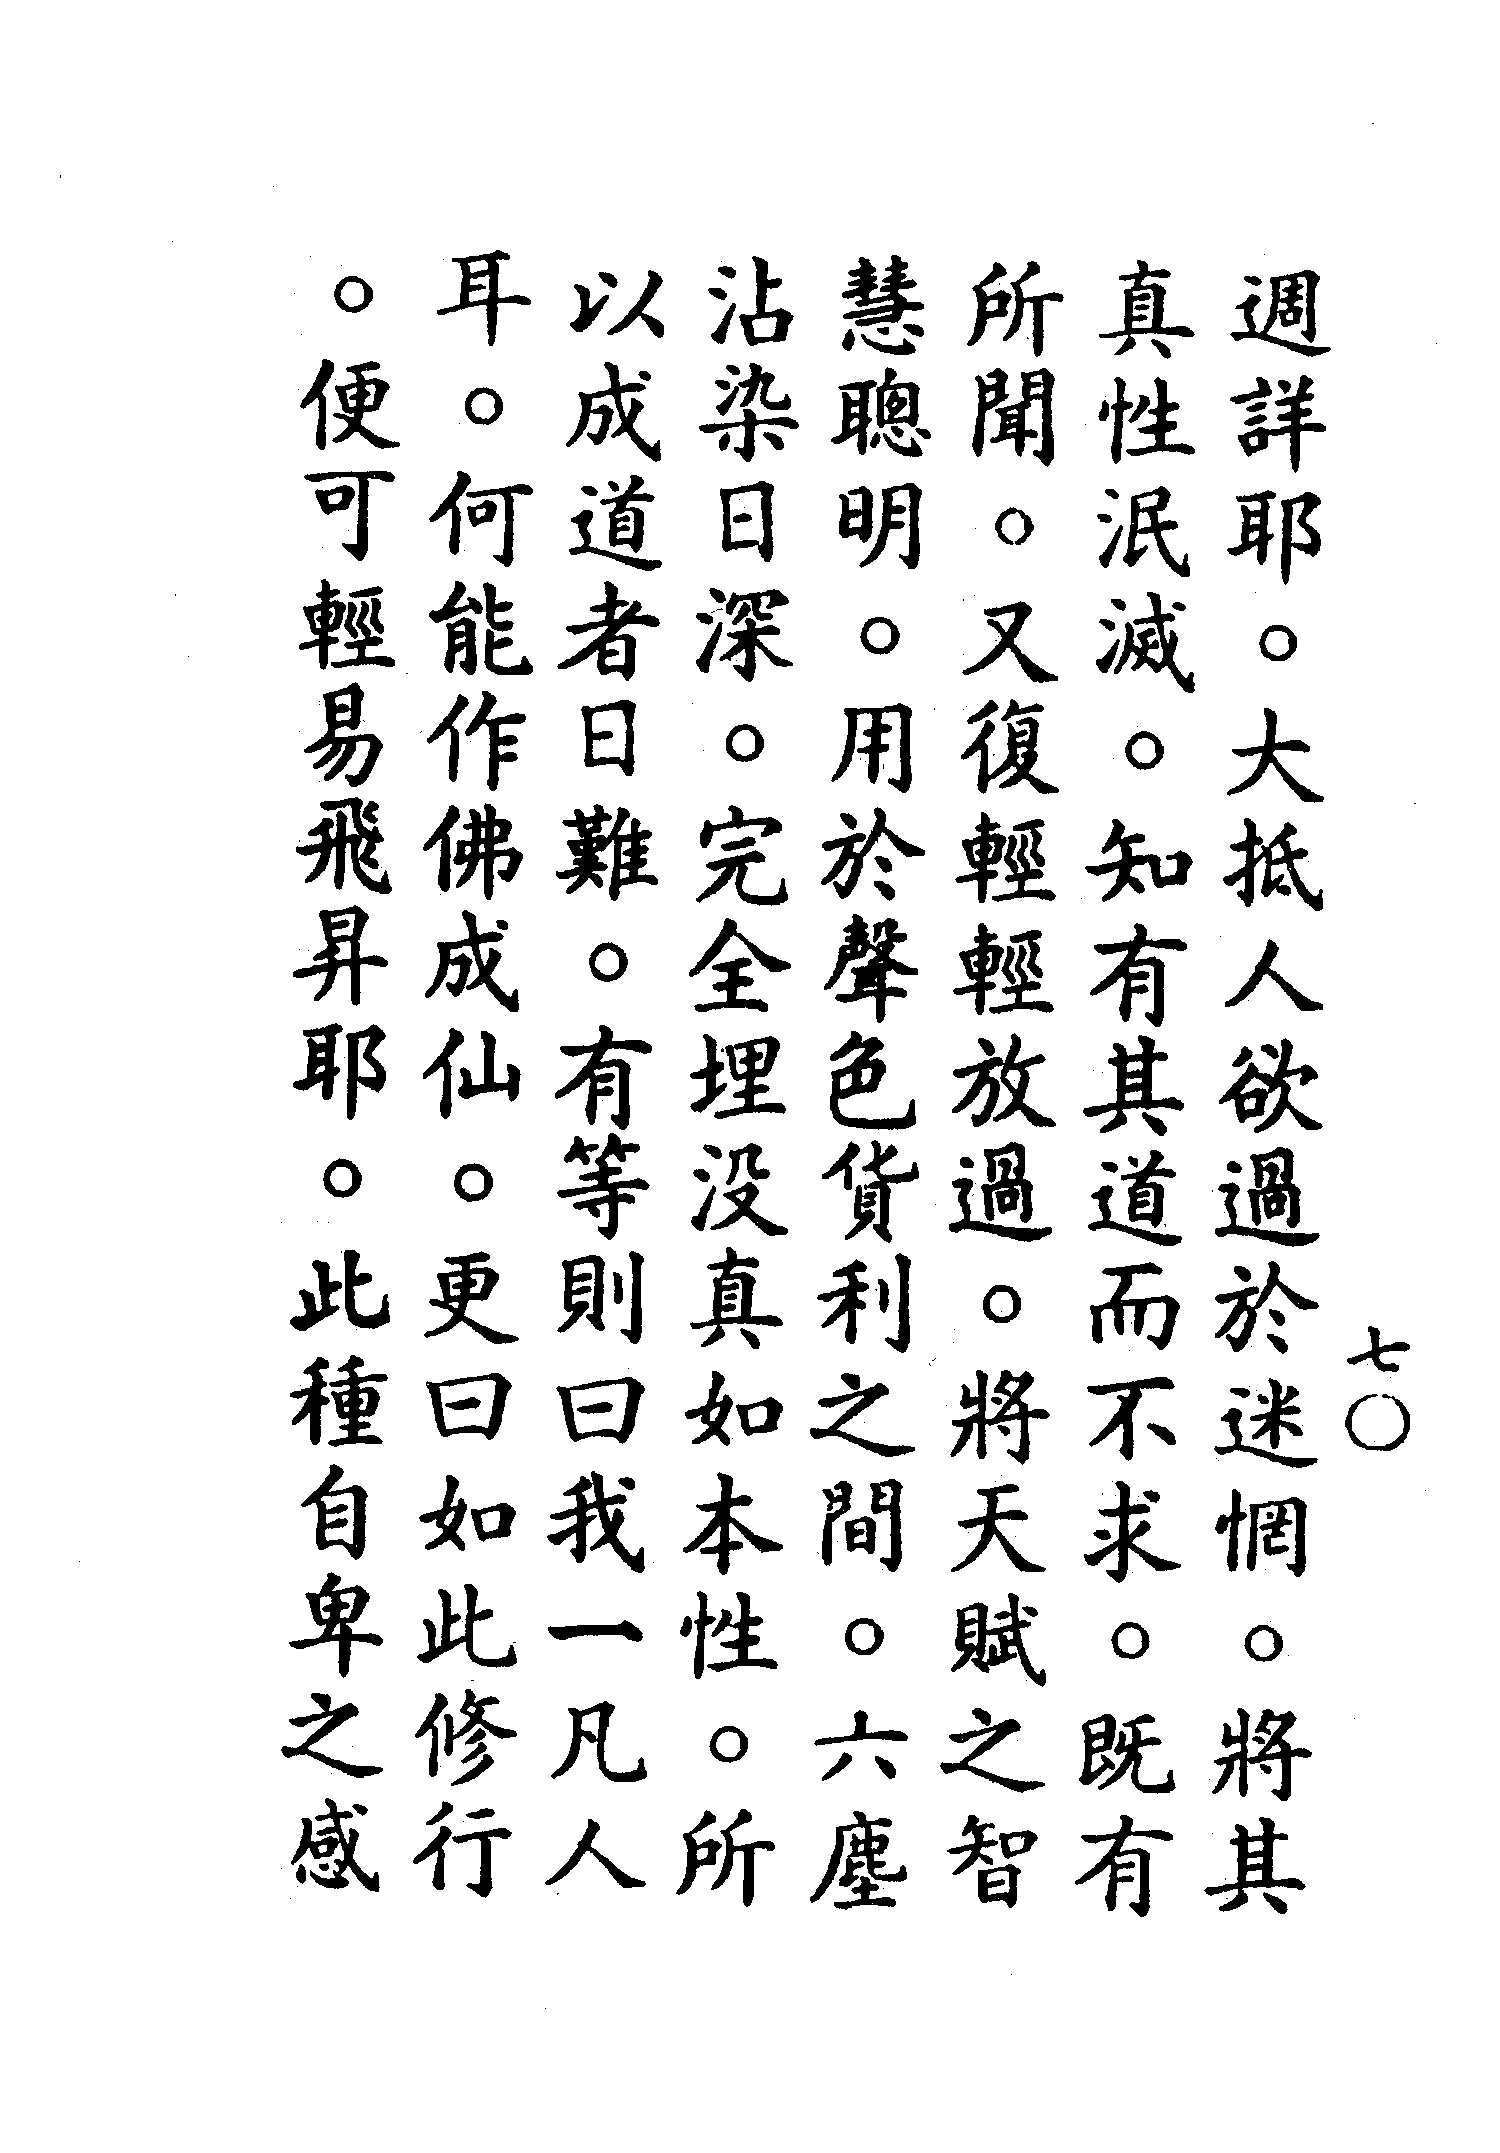 七〇
週詳耶。大抵人欲過於迷惘。將其
真性泯滅。知有其道而不求。既有
所聞。又復輕輕放過。將天賦之智
慧聰明。用於聲色貨利之間。六塵
沾染日深。完全埋没真如本性。所
以成道者日難。有等則曰我一凡人
耳。何能作佛成仙。更曰如此修行
。便可輕易飛昇耶。此種自卑之感